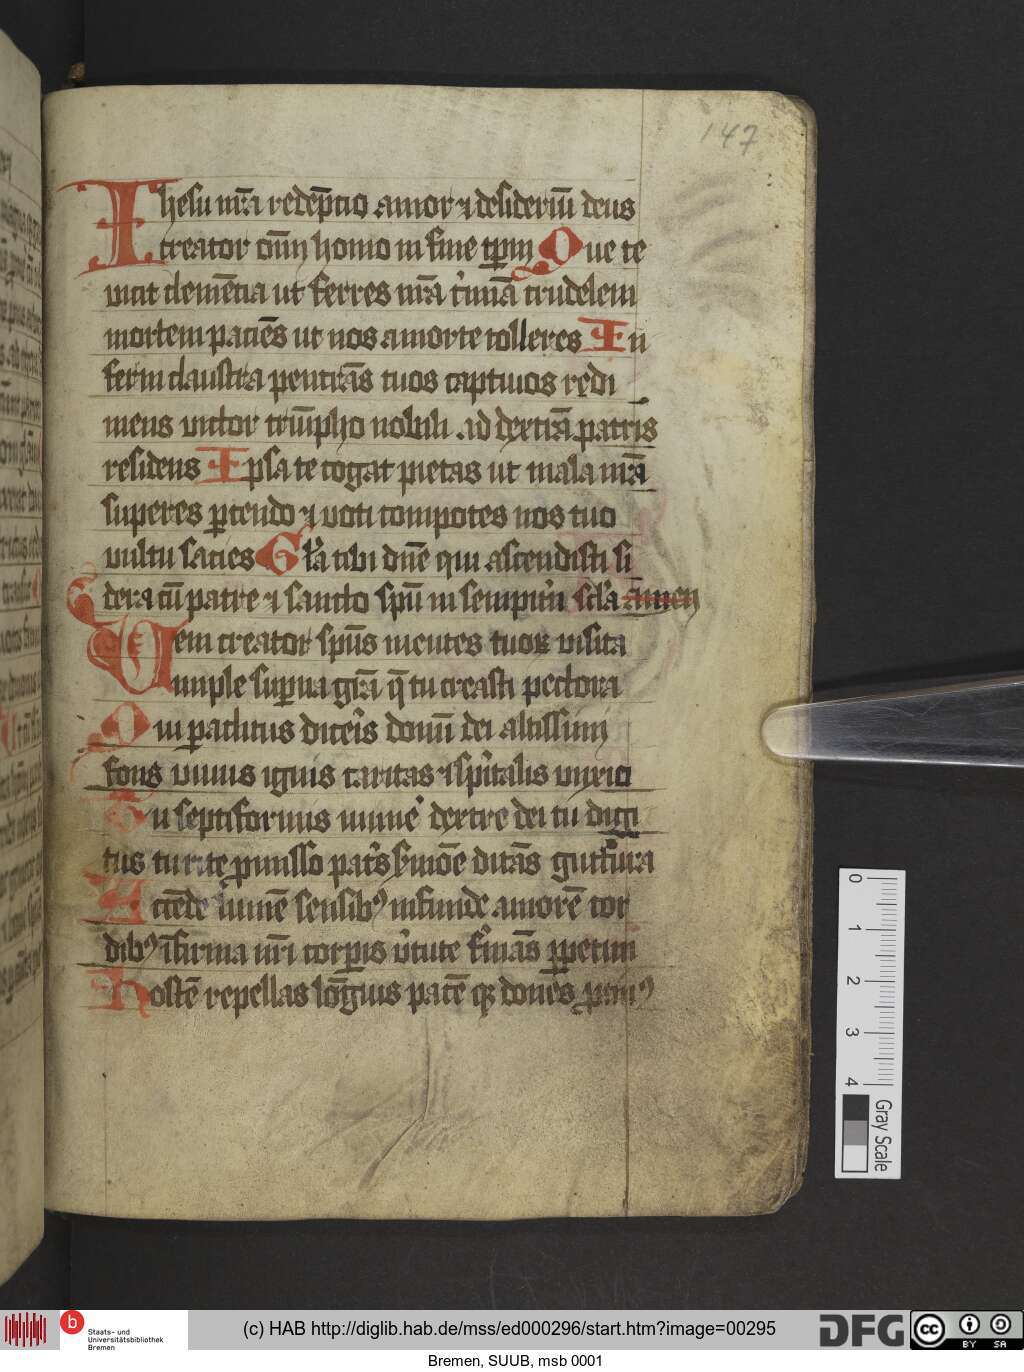 147
Ihesu nr̄a redēptio amor ⁊ desideriū deus
creator om̄i homo in fine tꝑm Que te
vicit clemētia ut ferres nr̄a c'mīa crudelem
mortem paciēs ut nos a morte tolleres In
ferni claustra penetrās tuos captiuos redi
mens victor triūpho nobili ad dextrā patris
residens Ipsa te cogat pietas ut mala nr̄a
superes ꝑcendo ⁊ uoti compotes nos tuo
vultu sacies Gl'a tibi dn̄e qui ascendisti si
dera cū patre ⁊ sancto spū in sempit'n sc̄la amen
Veni creator sp̄us mentes tuoꝝ visita
imple suꝑna gr̄a q̄ tu creasti pectora
Qui paclitus diceris donū dei altissimi
fons viuus ignis caritas ⁊ sp'italis unxio
Tu septiformis mune' dextre dei tu digi
tus tu rite ꝓmisso pat's s'mōe ditās guttura
Accēde lumē sensibꝰ infunde amorē cor
dibꝰ īfirma nr̄i corꝑis v'tute f'mās ꝑpetim
Hostē repellas lōgius pacē qꝫ dones ꝓtinꝰ
0
1
2
3
4
Gray Scale
b
Staats- und
Universitätsbibliothek
Bremen
(c) HAB http://diglib.hab.de/mss/ed000296/start.htm?image=00295
DFG
cc
BY SA
Bremen, SUUB, msb 0001